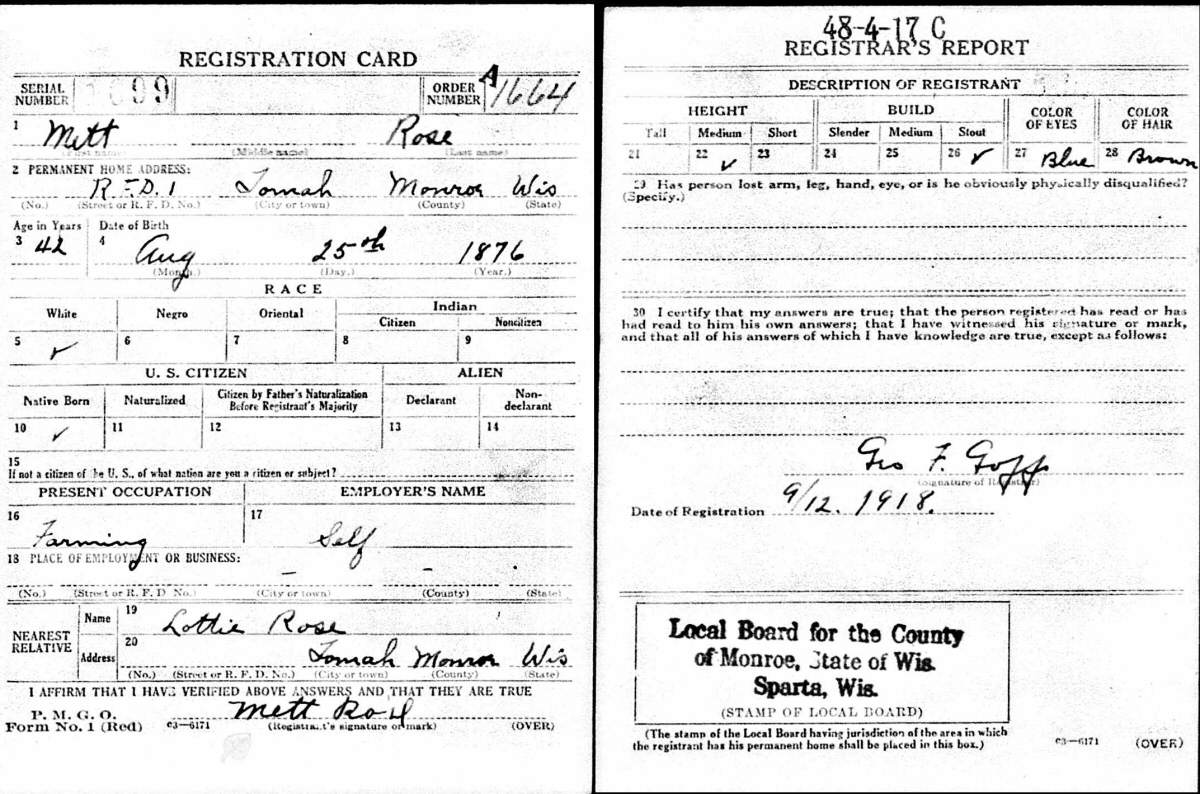 REGISTRATION CARD
SERIAL NUMBER 99
ORDER NUMBER A1664
1 Mett Rose
(First name) (Middle name) (Last name)
2 PERMANENT HOME ADDRESS:
R.F.D. 1 Tomah Monroe Wis
(No.) (Street or R. F. D. No.) (City or town) (County) (State)
Age in Years Date of Birth
3 42 4 Aug 25th 1876
(Month.) (Day.) (Year.)
RACE
White Negro Oriental Indian
Citizen Noncitizen
5 ✓ 6 7 8 9
U. S. CITIZEN ALIEN
Native Born Naturalized Citizen by Father's Naturalization Before Registrant's Majority Declarant Non-declarant
10 ✓ 11 12 13 14
15
If not a citizen of the U. S., of what nation are you a citizen or subject?
PRESENT OCCUPATION EMPLOYER'S NAME
16 Farming 17 Self
18 PLACE OF EMPLOYMENT OR BUSINESS:
(No.) (Street or R. F. D. No.) (City or town) (County) (State)
NEAREST RELATIVE
Name 19 Lottie Rose
Address 20 Tomah Monroe Wis
(No.) (Street or R. F. D. No.) (City or town) (County) (State)
I AFFIRM THAT I HAVE VERIFIED ABOVE ANSWERS AND THAT THEY ARE TRUE
P. M. G. O.
Form No. 1 (Red) c3—6171 Mett Rose (OVER)
(Registrant's signature or mark)
48-4-17 C
REGISTRAR'S REPORT
DESCRIPTION OF REGISTRANT
HEIGHT BUILD COLOR OF EYES COLOR OF HAIR
Tall Medium Short Slender Medium Stout
21 22 ✓ 23 24 25 26 ✓ 27 Blue 28 Brown
29 Has person lost arm, leg, hand, eye, or is he obviously physically disqualified?
(Specify.)
30 I certify that my answers are true; that the person registered has read or has
had read to him his own answers; that I have witnessed his signature or mark,
and that all of his answers of which I have knowledge are true, except as follows:
Geo F. Goff
(Signature of Registrar)
Date of Registration 9/12. 1918.
Local Board for the County
of Monroe, State of Wis.
Sparta, Wis.
(STAMP OF LOCAL BOARD)
(The stamp of the Local Board having jurisdiction of the area in which
the registrant has his permanent home shall be placed in this box.)
c3—6171 (OVER)